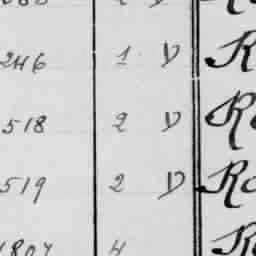 246 1 V R
518 2 V Ro
519 2 V Ro
1807 4 R